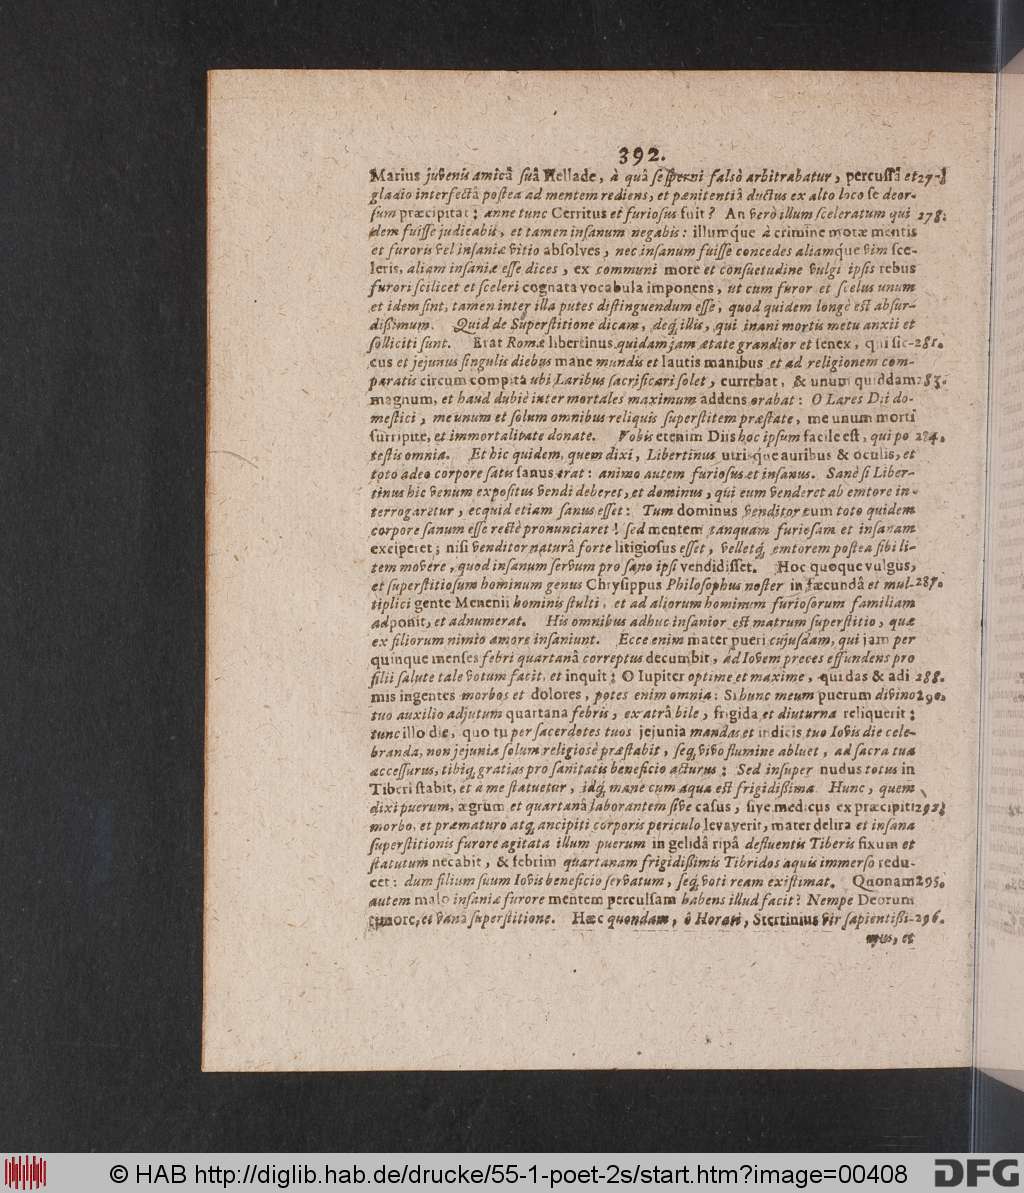 392.
Marius juvenis amicâ suâ Hellade, à quâ se sperni falsò arbitrabatur, percussâ et 277.
gladio interfectâ postea ad mentem rediens, et pænitentiâ ductus ex alto loco se deor-
sum præcipitat; anne tunc Cerritus et furiosus fuit? An verò illum sceleratum qui 278.
dem fuisse judicabis, et tamen insanum negabis: illumque à crimine motæ mentis
et furoris vel insaniæ vitio absolves, nec insanum fuisse concedes aliamque vim sce-
leris, aliam insaniæ esse dices, ex communi more et consuetudine vulgi ipsis rebus
furori scilicet et sceleri cognata vocabula imponens, ut cum furor et scelus unum
et idem sint, tamen inter illa putes distinguendum esse, quod quidem longè est absur-
dissimum. Quid de Superstitione dicam, deq́ illis, qui inani mortis metu anxii et
solliciti sunt. Erat Romæ libertinus quidam jam ætate grandior et senex, qui sic- 281.
cus et jejunus singulis diebus mane mundis et lautis manibus et ad religionem com-
paratis circum compita ubi Laribus sacrificari solet, currebat, & unum quiddam 283.
magnum, et haud dubiè inter mortales maximum addens orabat: O Lares Dii do-
mestici, me unum et solum omnibus reliquis superstitem præstate, me unum morti
surripite, et immortalitate donate. Vobis etenim Diis hoc ipsum facile est, qui po 284.
testis omnia. Et hic quidem, quem dixi, Libertinus utrisque auribus & oculis, et
toto adeo corpore satis sanus erat: animo autem furiosus et insanus. Sanè si Liber-
tinus hic venum expositus vendi deberet, et dominus, qui eum venderet ab emtore in-
terrogaretur, ecquid etiam sanus esset: Tum dominus venditor eum toto quidem
corpore sanum esse rectè pronunciaret! sed mentem tanquam furiosam et insanam
exciperet; nisi venditor naturâ forte litigiosus esset, velletq́ emtorem postea sibi li-
tem movere, quod insanum servum pro sano ipsi vendidisset. Hoc quoque vulgus,
et superstitiosum hominum genus Chrysippus Philosophus noster in fæcundâ et mul- 287.
tiplici gente Menenii hominis stulti, et ad aliorum hominum furiosorum familiam
adponit, et adnumerat. His omnibus adhuc insanior est matrum superstitio, quæ
ex filiorum nimio amore insaniunt. Ecce enim mater pueri cujusdam, qui jam per
quinque menses febri quartanâ correptus decumbit, ad Iovem preces effundens pro
filii salute tale votum facit, et inquit; O Iupiter optime et maxime, qui das & adi 288.
mis ingentes morbos et dolores, potes enim omnia: Si hunc meum puerum divino 290.
tuo auxilio adjutum quartana febris, ex atrâ bile, frigida et diuturna reliquerit;
tunc illo die, quo tu per sacerdotes tuos jejunia mandas et indicis tuo Iovis die cele-
branda, non jejunia solum religiosè præstabit, seq́ vivo flumine abluet, ad sacra tua
accessurus, tibiq́ gratias pro sanitatis beneficio acturus; Sed insuper nudus totus in
Tiberi stabit, et a me statuetur, idq́ mane cum aqua est frigidissima. Hunc, quem
dixi puerum, ægrum et quartanâ laborantem sive casus, sive medicus ex præcipiti 292.
morbo, et præmaturo atq́ ancipiti corporis periculo levaverit, mater delira et insana
superstitionis furore agitata illum puerum in gelidâ ripâ defluentis Tiberis fixum et
statutum necabit, & febrim quartanam frigidissimis Tibridos aquis immerso redu-
cet: dum filium suum Iovis beneficio servatum, seq́ voti ream existimat. Quonam 295.
autem malo insaniæ furore mentem perculsam habens illud facit? Nempe Deorum
timore, et vanâ superstitione. Hæc quondam, ô Horati, Stertinius vir sapientissi- 296.
mus, et
© HAB http://diglib.hab.de/drucke/55-1-poet-2s/start.htm?image=00408
DFG